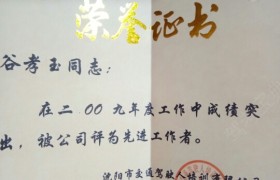 荣誉证书
谷孝玉同志：
在二00九年度工作中成绩突
出，被公司评为先进工作者。
沈阳市交通驾驶人培训有限公司